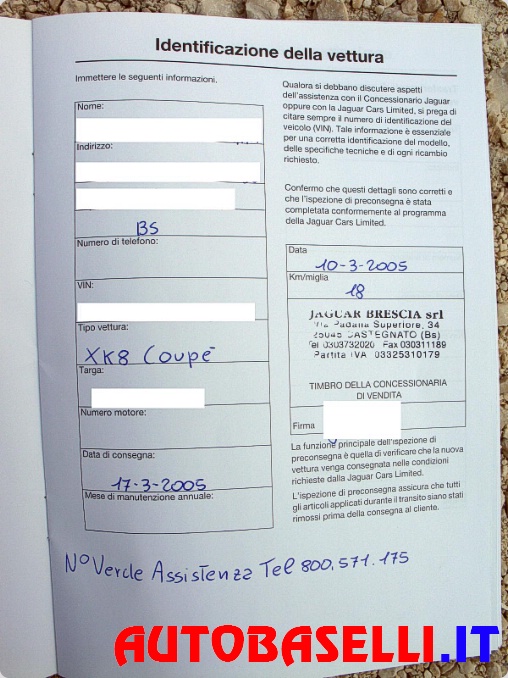 Identificazione della vettura
Immettere le seguenti informazioni.
Nome:
Indirizzo:
BS
Numero di telefono:
VIN:
Tipo vettura:
XK8 Coupè
Targa:
Numero motore:
Data di consegna:
17-3-2005
Mese di manutenzione annuale:
Qualora si debbano discutere aspetti
dell'assistenza con il Concessionario Jaguar
oppure con la Jaguar Cars Limited, si prega di
citare sempre il numero di identificazione del
veicolo (VIN). Tale informazione è essenziale
per una corretta identificazione del modello,
delle specifiche tecniche e di ogni ricambio
richiesto.
Confermo che questi dettagli sono corretti e
che l'ispezione di preconsegna è stata
completata conformemente al programma
della Jaguar Cars Limited.
Data
10-3-2005
Km/miglia
18
JAGUAR BRESCIA srl
Via Padana Superiore, 34
25045 CASTEGNATO (Bs)
Tel 0303732020 Fax 030311189
Partita IVA 03325310179
TIMBRO DELLA CONCESSIONARIA
DI VENDITA
Firma
La funzione principale dell'ispezione di
preconsegna è quella di verificare che la nuova
vettura venga consegnata nelle condizioni
richieste dalla Jaguar Cars Limited.
L'ispezione di preconsegna assicura che tutti
gli articoli applicati durante il transito siano stati
rimossi prima della consegna al cliente.
N° Verde Assistenza Tel 800.571.175
AUTOBASELLI.IT